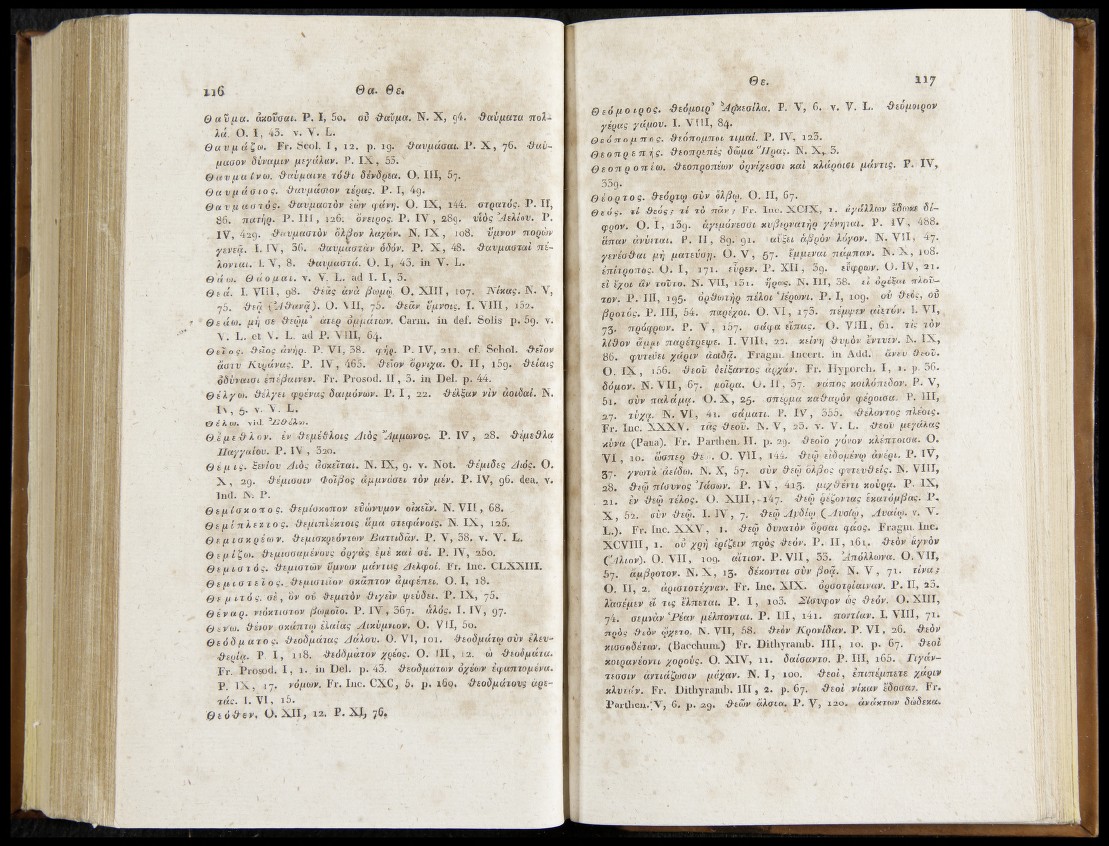 116 Θα. Θε.
Θαῦμα. ἀκοῦσαι. P. I, 50. οὐ θαῦμα. N. X, 94. θαύματα πολ-
λά. O. I, 43. v. V. L.
Θαυμάζω. Fr. Scol. I, 12. p. 19. θαυμάσαι. P. X, 76. θαύ-
μασον δύναμιν μεγάλαν. P. IX, 55.
Θαυμαίνω. θαύμαινε τόθι δένδρεα. O. III, 57.
Θαυμάσιος. θαυμάσιον τέρας. P. I, 49.
Θαυμαστός. θαυμαστὸν ἐὼν φάνη. O. IX, 144. στρατός. P. II,
86. πατήρ. P. III, 126. ὄνειρος. P. IV, 289. υἱὸς Ἀελίου. P.
IV, 429. θαυμαστὸν ὄλβον λαχών. N. IX, 108. ὕμνον πορὼν
γενεᾷ. I. IV, 36. θαυμαστὰν ὁδόν. P. X, 48. θαυμασταὶ πέ-
λονται. I. V, 8. θαυμαστά. O. I, 43. in V. L.
Θάω. Θάομαι. v. V. L. ad I. I, 3.
Θεά. I. VIII, 98. θεᾶς ἀνὰ βωμῷ O. XIII, 107. Νίκας. N. V,
75. θεᾷ (Ἀθανᾷ). O. VII, 75. θεᾶν ὕμνοις. I. VIII, 132.
Θεάω. μή σε θεῷμ' ἄτερ ὀμμάτων. Carm. in def. Solis p. 59. v.
V. L. et V. L. ad P. VIII, 64.
Θεῖος. θεῖος ἀνήρ. P. VI, 38. φήρ. P. IV, 211. cf. Schol. θεῖον
ἄστυ Κυράνας. P. IV, 465. θεῖον ὄρνιχα. O. II, 159. θείαις
ὀδύναισι ἐπέβαινεν. Fr. Prosod. II, 3. in Del. p. 44.
Θέλγω. θέλγει φρένας δαιμόνων. P. I, 22. θέλξαν νιν ἀοιδαί. N.
IV, 5. v. V. L.
Θέλω. vid. Ἐθέλω.
Θέμεθλον. ἐν θεμέθλοις Διὸς Ἄμμωνος. P. IV, 28. θέμεθλα
Παγγαίου. P. IV, 320.
Θέμις. ξενίου Διὸς ἀσκεῖται. N. IX, 9. v. Not. θέμιδες Διός. O.
X, 29. θέμισσιν Φοῖβος ἀμμνάσει τὸν μέν. P. IV, 96. dea. v.
Ind. N. P.
Θεμίσκοπος. θεμίσκοπον εὐώνυμον οἰκεῖν. N. VII, 68.
Θεμίπλεκτος. θεμιπλέκτοις ἅμα στεφάνοις. N. IX, 125.
Θεμισκρέων. θεμισκρεόντων Βαττιδᾶν. P. V, 38. v. V. L.
Θεμίζω. θεμισσαμένους ὀργὰς ἐμὲ καὶ σέ. P. IV, 250.
Θεμιστός. θεμιστῶν ὕμνων μάντιες Δελφοί. Fr. Inc. CLXXIII.
Θεμιστεῖος. θεμιστεῖον σκᾶπτον ἀμφέπει. O. I, 18.
Θεμιτός. σέ, ὃν οὐ θεμιτὸν θιγεῖν ψεύδει. P. IX, 75.
Θέναρ. νεόκτιστον βωμοῖο. P. IV, 367. ἁλός. I. IV, 97.
Θένω. θενων σκάπτῳ ἐλαίας Λικύμνιον. O. VII, 50.
Θεόδματος. θεοδμάτας Δάλου. O. VI, 101. θεοδμάτῳ σὺν ἐλευ-
θερίᾳ. P. I, 118. θεόδματον χρέος. O. III, 12. ὦ θεοδμάτα.
Fr. Prosod. I, 1. in Del. p. 43. θεοδμάτων ὀχέων ἐφαπτομένα.
P. IX, 17. νόμων. Fr. Inc. CXC, 5. p. 169. θεοδμάτους ἀρε-
τάς. I. VI, 15.
Θεόθεν. O. XII, 12. P. XI, 76.
Θε. 117
Θεόμοιρος. θεόμοιρ' Ἀρκεσίλα. P. V, 6. v. V. L. θεόμοιρον
γέρας γάμου. I. VIII, 84.
Θεόπομπος. θεόπομποι τιμαί. P. IV, 123.
Θεοπρεπής. θεοπρεπὲς δῶμα Ἥρας. N. X, 3.
Θεοπροπέω. θεοπροπέων ὀρνίχεσσι καὶ κλάροισι μάντις. P. IV,
339.
Θέορτος. θεόρτῳ σὺν ὄλβῳ. O. II, 67.
Θεός. τί θεός; τί τὸ πᾶν; Fr. Inc. XCIX, 1. ἀγάλλων ἔδωκε δί-
φρον. O. I, 139. ἁγιμόνεσσι κυβερνατὴρ γένηται. P. IV, 488.
ἅπαν ἀνύεται. P. II, 89. 91. αὔξει ἁβρὸν λόγον. N. VII, 47.
γενέσθαι μὴ ματεύσῃ. O. V, 57. ἔμμεναι πάμπαν. N. X, 108.
ἐπίτροπος. O. I, 171. εὗρεν. P. XII, 39. εὔφρων. O. IV, 21.
εἰ ἔχοι ἂν τοῦτο. N. VII, 131. ἥρως. N. III, 38. εἰ ὀρέξαι πλοῦ-
τον. P. III, 195. ὀρθωτὴρ πέλοι Ἱέρωνι. P. I, 109. οὐ θεός, οὐ
βροτός. P. III, 54. παρέχοι. O. VI, 175. πέμψεν αἰετόν. I. VI,
73. πρόφρων. P. V, 157. σάφα εἴπαις. O. VIII, 61. τις τὸν
λίθον ἄμμι παρέτρεψε. I. VIII, 22. κείνη θυμὸν ἔντυεν. N. IX,
86. φυτεύει χάριν ἀοιδᾷ. Fragm. Incert. in Add. ἄνευ θεοῦ.
O. IX, 156. θεοῦ δείξαντος ἀρχάν. Fr. Hyporch. I, 1. p. 36.
δόμον. N. VII, 67. μοῖρα. O. II, 37. νάπος κοιλόπεδον. P. V,
51. σὺν παλάμᾳ. O. X, 25. σπέρμα καθαρὸν φέροισα. P. III,
27. τύχᾳ. N. VI, 41. σάματι. P. IV, 355. θέλοντος πλέοις.
Fr. Inc. XXXV. τὰς θεοῦ. N. V, 25. v. V. L. θεοῦ μεγάλας
κύνα (Pana). Fr. Parthen. II. p. 29. θεοῖο γόνον κλέπτοισα. O.
VI, 10. ὥσπερ θε . . O. VII, 144. θεῷ εἰδομένῳ ἀνέρι. P. IV,
37. γνωτὰ ἀείδω. N. X, 57. σὺν θεῷ ὄλβος φυτευθείς. N. VIII,
28. θεῷ πίσυνος Ἰάσων. P. IV, 413. μιχθέντι κούρᾳ. P. IX,
21. ἐν θεῷ τέλος. O. XIII, 147. θεῷ ῥέζοντας ἑκατόμβας. P.
X, 52. σὺν θεῷ. I. IV, 7. θεῷ Λυδίῳ (Λυσίῳ, Λυαίῳ. v. V.
L.). Fr. Inc. XXV, 1. θεῷ δυνατὸν ὄρσαι φάος. Fragm. Inc.
XCVIII, 1. οὐ χρὴ ἐρίζειν πρὸς θεόν. P. II, 161. θεὸν ἁγνὸν
(Ἅλιον). O. VII, 109. αἴτιον. P. VII, 33. Ἀπόλλωνα. O. VII,
57. ἄμβροτον. N. X, 13. δέκονται σὺν βοᾷ. N. V, 71. τίνα;
O. II, 2. ἀριστοτέχναν. Fr. Inc. XIX. ὀρσοτρίαιναν. P. II, 25.
λασέμεν εἴ τις ἔλπεται. P. I, 103. Σίσυφον ὡς θεόν. O. XIII,
74. σεμνὰν Ῥέαν μέλπονται. P. III, 141. ποντίαν. I. VIII, 71.
πρὸς θεὸν ᾤχετο. N. VII, 58. θεὸν Κρονίδαν. P. VI, 26. θεὸν
κισσοδέταν. (Bacchum.) Fr. Dithyramb. III, 10. p. 67. θεοὶ
κοιρανέοντι χορούς. O. XIV, 11. δαίσαντο. P. III, 165. Γιγάν-
τεσσιν ἀντιάζωσιν μάχαν. N. I, 100. θεοί, ἐπιπέμπετε χάριν
κλυτάν. Fr. Dithyramb. III, 2. p. 67. θεοὶ νίκαν ἔδοσαν. Fr.
Parthen. V, 6. p. 29. θεῶν ἄλσεα. P. V, 120. ἀνάκτων δώδεκα.